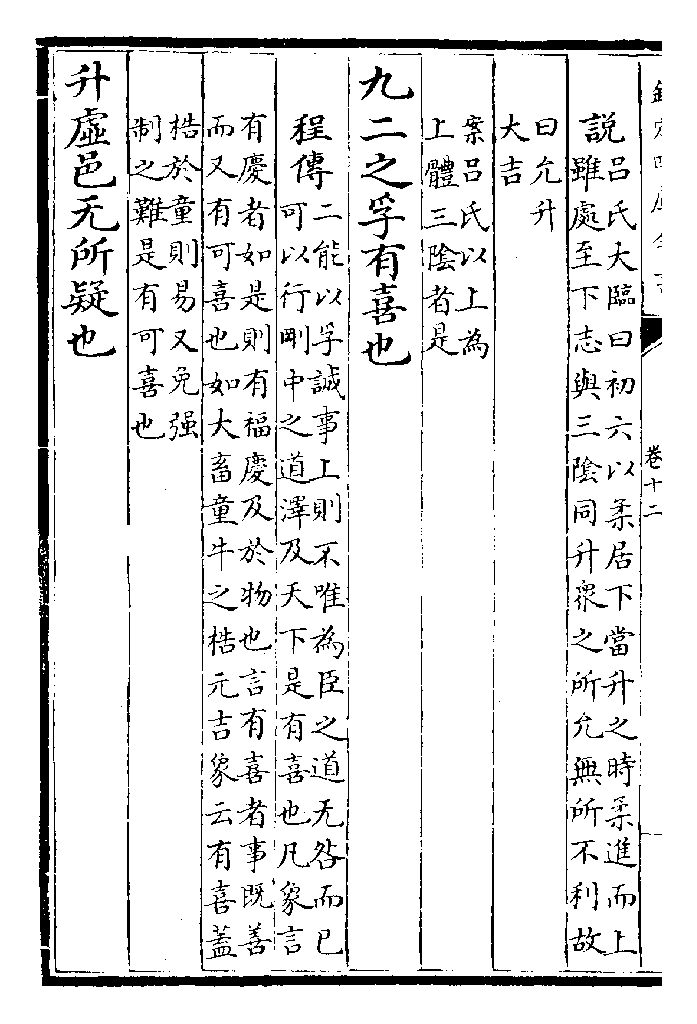 卷十二
説
吕氏大臨曰初六以柔居下當升之時柔進而上
雖處至下志與三隂同升衆之所允無所不利故
曰允升
大吉
案吕氏以上為
上體三隂者是
九二之孚有喜也
程傳
二能以孚誠事上則不唯為臣之道无咎而已
可以行剛中之道澤及天下是有喜也凡象言
有慶者如是則有福慶及於物也言有喜者事既善
而又有可喜也如大畜童牛之梏元吉象云有喜蓋
梏於童則易又免强
制之難是有可喜也
升虛邑无所疑也